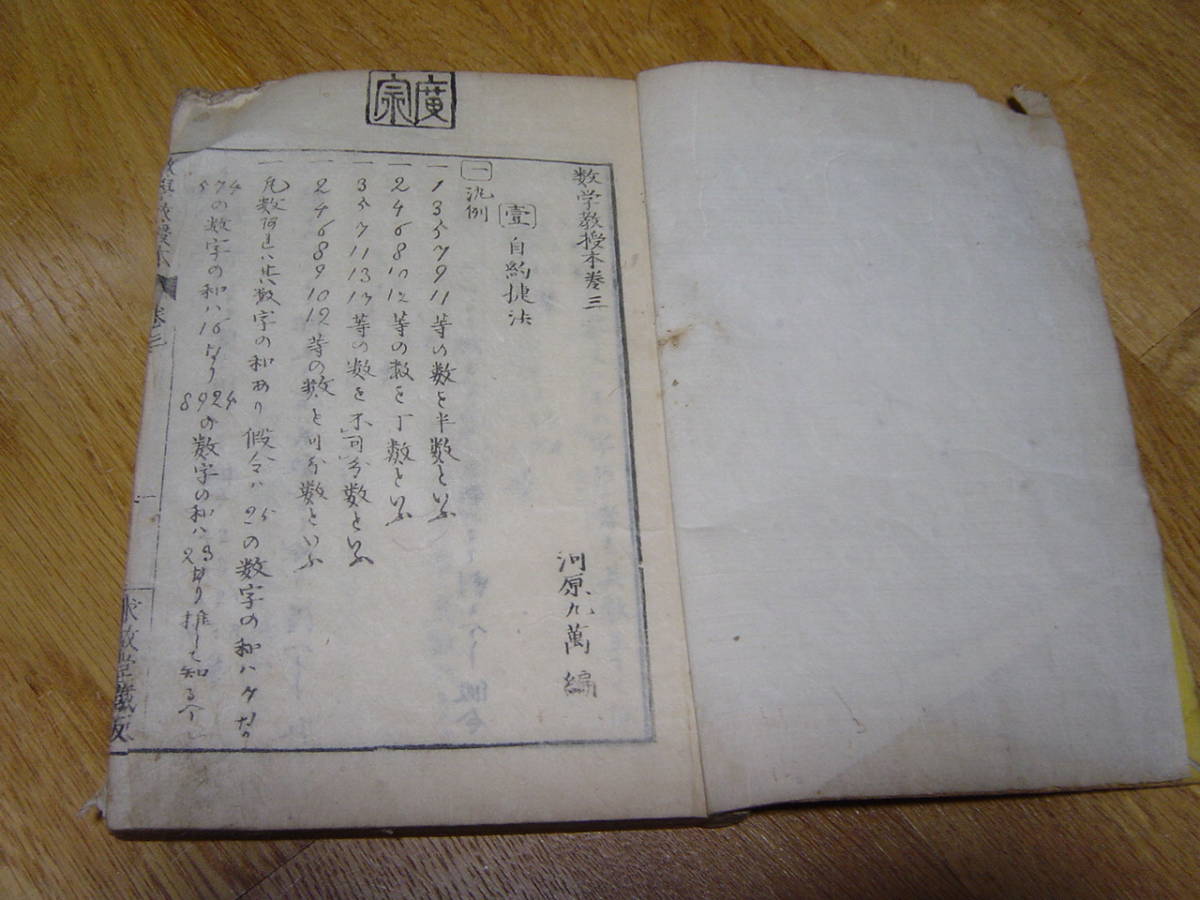 廣宗
数学教授本巻三
河原九萬編
壹 自約捷法
一 汎例
一 1 3 5 7 9 11 等の数を半数といふ
一 2 4 6 8 10 12 等の数を丁数といふ
一 3 5 7 11 13 17 等の数を不可分数といふ
一 2 4 6 8 9 10 12 等の数を可分数といふ
一 凡数あれハ其数字の和あり 假令ハ 25 の数字の和ハ 7 なり
574 の数字の和ハ 16 なり 8924 の数字の和ハ 23 なり推して知るべし
教授本
巻三
一
求敬堂藏版